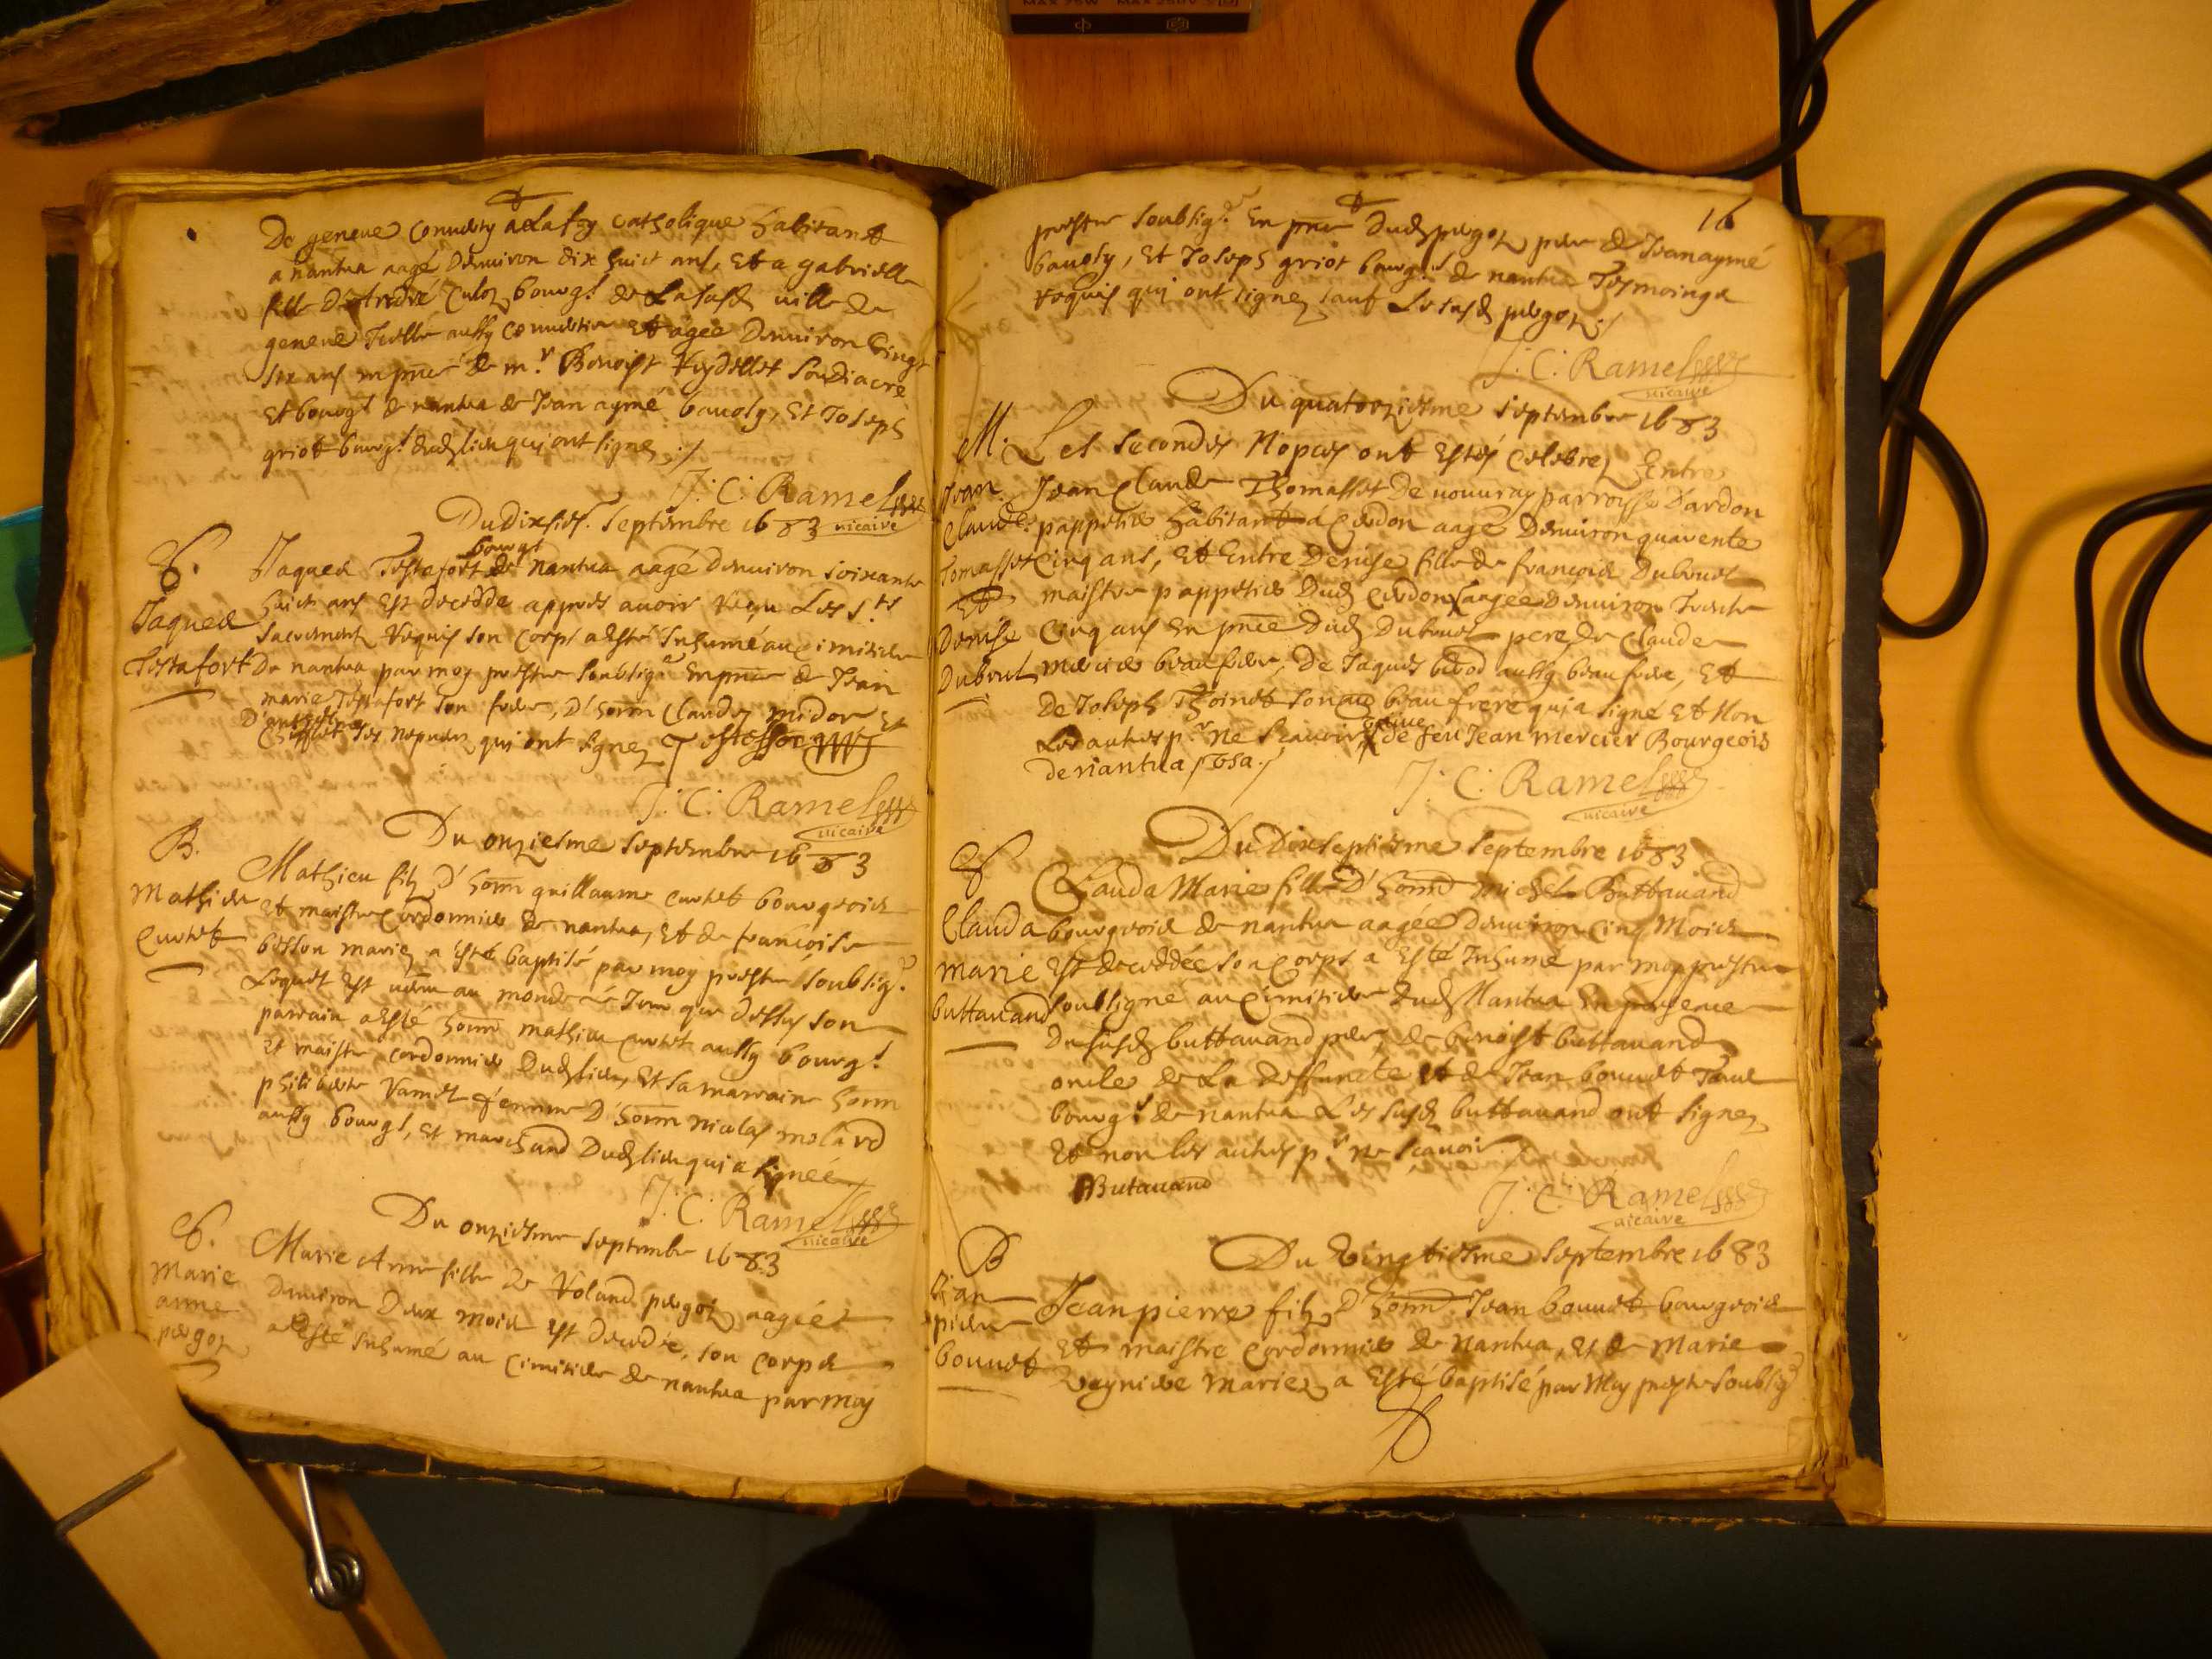 MAX 75W MAX 250V
De geneve converty a la foy catholique habitant
a nantua aagé denviron dix huict ans, Et a gabrielle
fille D'André Culoz bourgs de La susd ville de
geneve Icelle aussy convertie Et agée denviron vingt
six ans en pnce de mr Benoist Reydellet soudiacre
Et bourgs de nantua de Jean aymé bavoly, Et Joseph
griot bourgs dud lieu qui ont signez
J. C. Ramel
vicaire
Du dixies. Septembre 1683
S. Jaques Testafort bourgs de Nantua aagé denviron soixante
Jaques huict ans Est decedde appres avoir Reçu Les sts
sacrements Requis son corps a Esté Inhumé au cimitiere
Testafort De nantua par moy prestre soubsigé En pnce de Jean
marie Testafort son frere, D'honn Claude midor Et
D' ses nepveux qui ont signez Testeffort
J. C. Ramel
vicaire
B. Du onziesme Septembre 1683
Mathieu filz D'honn guillaume Curtet bourgeois
Mathieu Et maistre Cordonnier de nantua, Et de francoise
Curtet besson mariez a Esté baptisé par moy prestre soubsigé
Lequel Est venu au monde Le Jour que dessus son
parrain a Esté honn mathieu Curtet aussy bourgs
Et maistre cordonnier Dud lieu, Et sa marraine honn
philiberte Ramel femme D'honn nicolas molard
aussy bourgs, Et marchand Dud lieu qui a signée
J. C. Ramel
vicaire
S. Du onziesme Septembre 1683
Marie Anne fille de Roland pergoz aagée
Marie anne Denviron Deux mois Est decedée, son corps
pergoz a Esté Inhumé au cimitiere de nantua par moy
16
prestre soubsigé En pnce Dud pergoz pere de Jean aymé
bavoly, Et Joseph griot bourgs de nantua Tesmoings
Requis qui ont signez sauf Le susd pergoz
J. C. Ramel
vicaire
Du quatorziesme Septembre 1683
M. Les secondes Nopces ont Estés Celebrez Entre
Jean Jean Claude Thomasset De vouuray parroisse Dardon
Claude pappetier habitant a Cerdon aagé Denviron quarente
Tomasset Cinq ans, Et Entre Denise fille de francois Dubouet
Et maistre pappetier Dud Cerdon aagée Denviron Trente
Denise Cinq ans En pnce Dud Dubouet pere, De Claude
Dubouet mercier beaufrere, De Jaques berod aussy beaufrere, Et
De Joseph Thoinet son beau frere qui a signé Et Non
Les autres pr ne Scavoir vefve de feu Jean mercier Bourgeois
de nantua
J. C. Ramel
vicaire
Du Dixseptiesme Septembre 1683
S Clauda Marie fille D'honn michel Buttavand
Clauda bourgeois de nantua aagée denviron cinq Mois
marie Est deceddée son Corps a Esté Inhumé par moy prestre
buttavand soubsigné au Cimitiere dud Nantua En presence
Du susd buttavand pere, De benoist buttavand
oncle de La deffuncte Et de Jean bouuet Tous
bourgs de nantua Les susd buttavand ont signez
Et non les autres pr ne scavoir.
Butavand
J. C. Ramel
vicaire
B Du Vingtiesme Septembre 1683
Jean Jean pierre filz D'honn Jean bouuet bourgeois
pierre Et maistre Cordonnier de nantua, Et de Marie
bouuet mariez a Esté baptisé par Moy prestre soubsigé